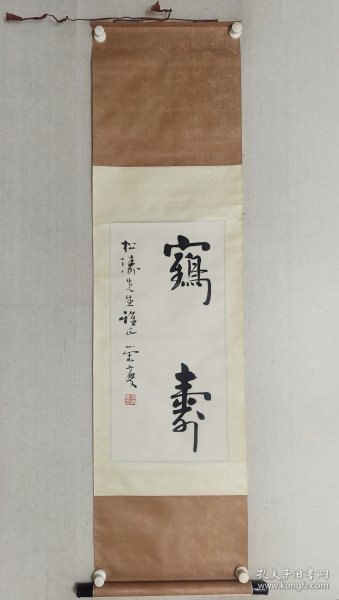 鶴壽
松濤先生雅正
孔夫子旧书网